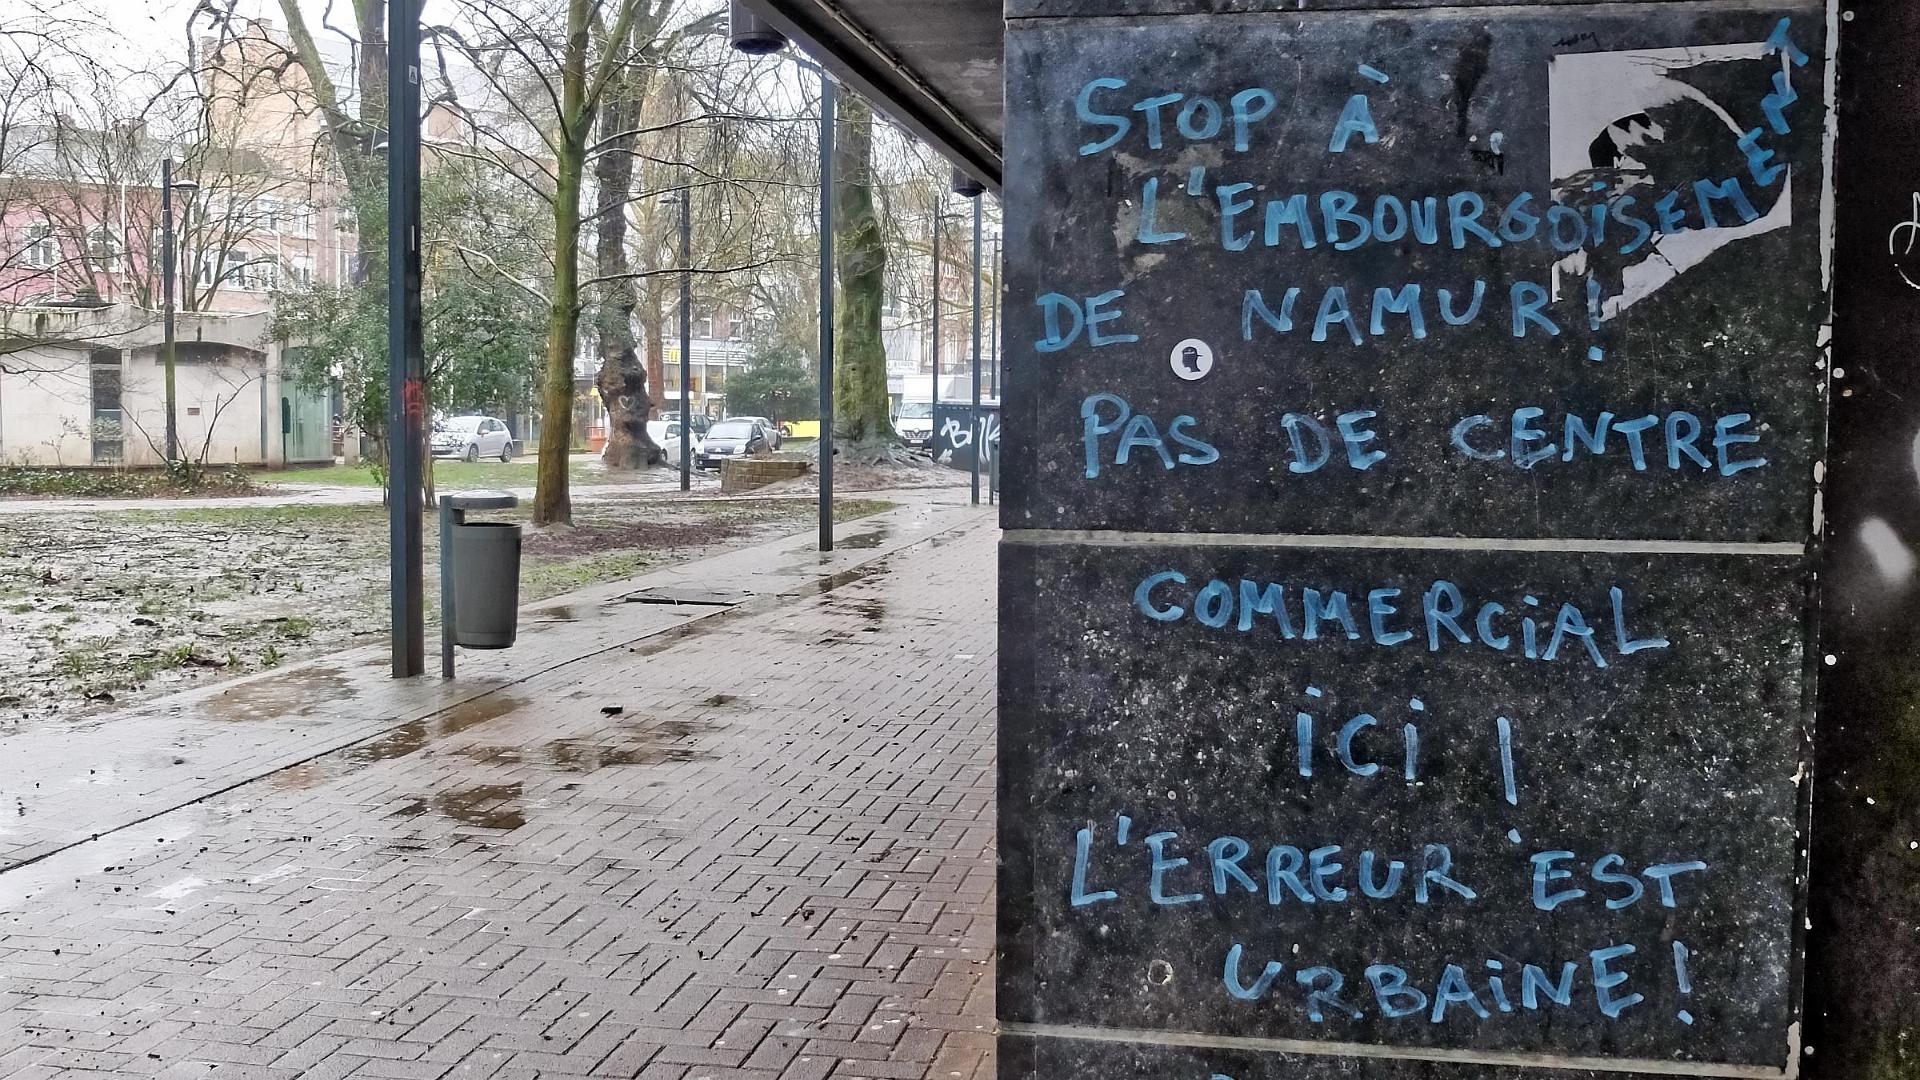 STOP À
L'EMBOURGOISEMENT
DE NAMUR!
PAS DE CENTRE
COMMERCIAL
ICI !
L'ERREUR EST
URBAINE!